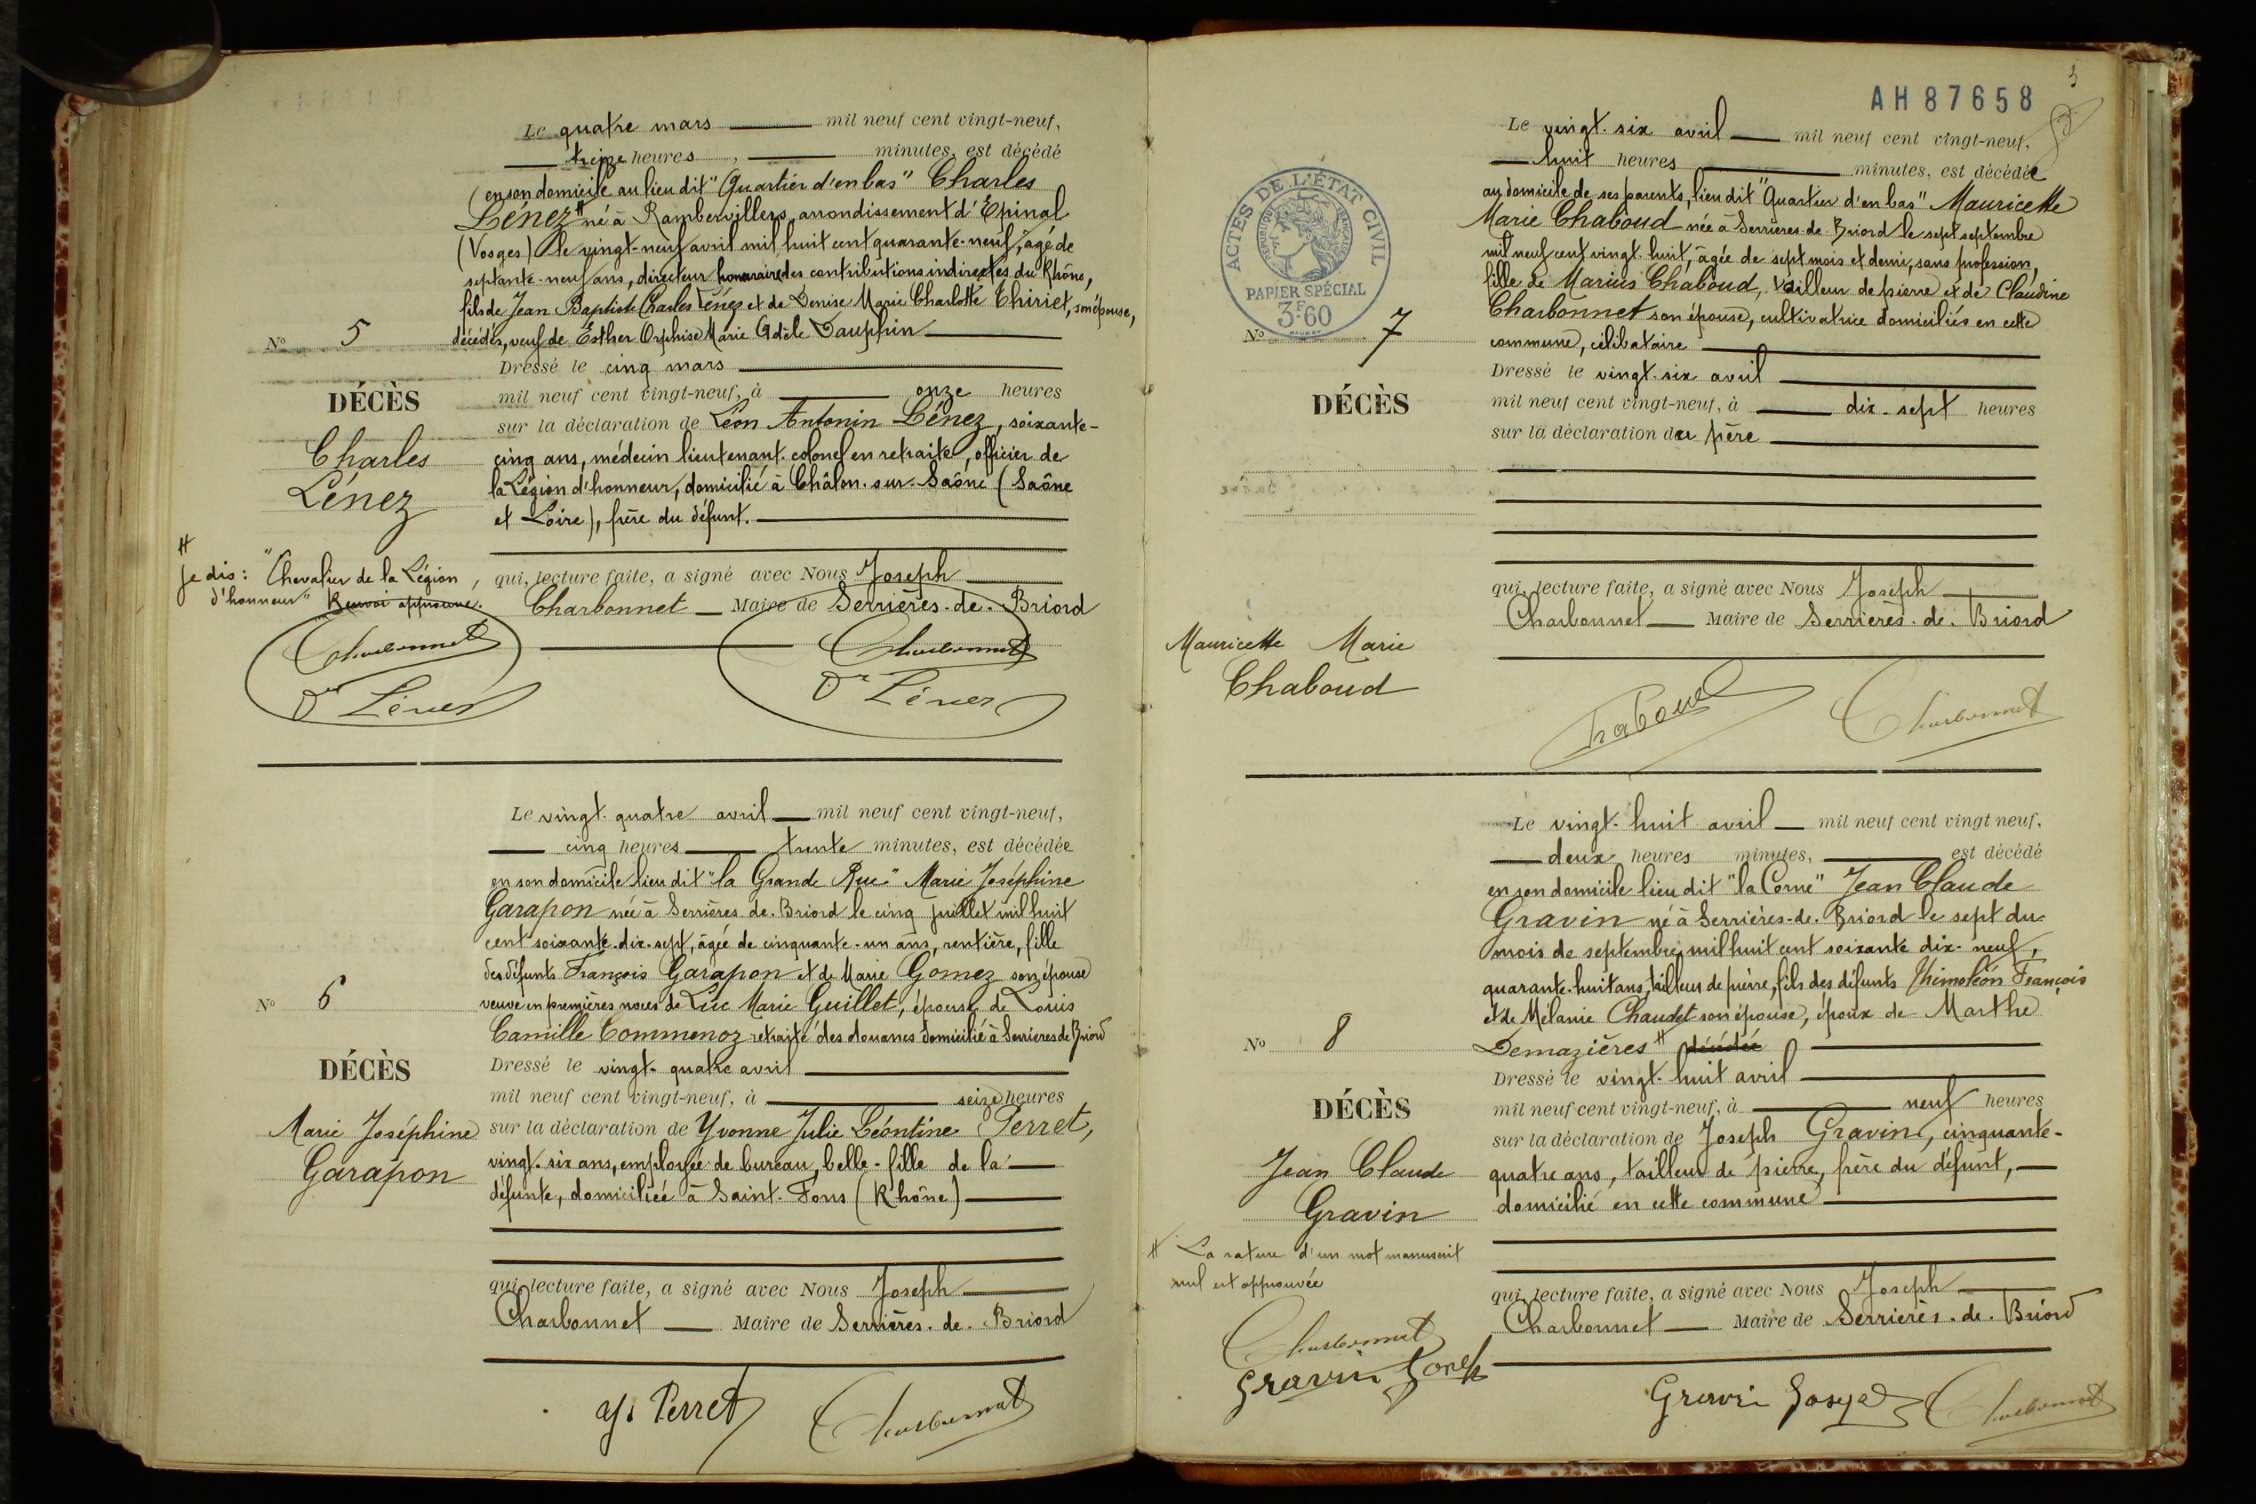 Le quatre mars mil neuf cent vingt-neuf,
treize heures, minutes, est décédé
en son domicile au lieu dit "Quartier d'en bas" Charles
Lénez # né à Rambervillers arrondissement d'Epinal
(Vosges) le vingt-neuf avril mil huit cent quarante-neuf, âgé de
septante-neuf ans, directeur honoraire des contributions indirectes du Rhône,
fils de Jean Baptiste Charles Lénez et de Denise Marie Charlotte Thiriet, son épouse,
décédés, veuf de Esther Orphise Marie Adèle Dauphin
Dressé le cinq mars
mil neuf cent vingt-neuf, à onze heures
sur la déclaration de Léon Antonin Lénez, soixante-
cinq ans, médecin lieutenant-colonel en retraite, officier de
la Légion d'honneur, domicilié à Châlon-sur-Saône (Saône
et Loire), frère du défunt.
qui, lecture faite, a signé avec Nous Joseph
Charbonnet Maire de Serrières-de-Briord
Charbonnet
Dr Lénez
No 5
DÉCÈS
Charles
Lénez
# Je dis: "Chevalier de la Légion
d'honneur" Renvoi approuvé.
Charbonnet
Dr Lénez
Le vingt-quatre avril mil neuf cent vingt-neuf,
cinq heures trente minutes, est décédée
en son domicile lieu dit "la Grande Rue" Marie Joséphine
Garapon née à Serrières-de-Briord le cinq juillet mil huit
cent soixante-dix-sept, âgée de cinquante-un ans, rentière, fille
des défunts François Garapon et de Marie Gomez son épouse
veuve en premières noces de Luc Marie Guillet, épouse de Louis
Camille Commenoz retraité des douanes domicilié à Serrières de Briord
Dressé le vingt-quatre avril
mil neuf cent vingt-neuf, à seize heures
sur la déclaration de Yvonne Julie Léontine Perret,
vingt-six ans, employée de bureau, belle-fille de la
défunte, domiciliée à Saint-Fons (Rhône)
qui, lecture faite, a signé avec Nous Joseph
Charbonnet Maire de Serrières-de-Briord
No 6
DÉCÈS
Marie Joséphine
Garapon
Y. Perret Charbonnet
AH87658
3
ACTES DE L'ÉTAT CIVIL
RÉPUBLIQUE FRANÇAISE
PAPIER SPÉCIAL
3F60
Le vingt-six avril mil neuf cent vingt-neuf,
huit heures minutes, est décédée
au domicile de ses parents, lieu dit "Quartier d'en bas" Mauricette
Marie Chaboud née à Serrières-de-Briord le sept septembre
mil neuf cent vingt-huit, âgée de sept mois et demi, sans profession,
fille de Marius Chaboud, tailleur de pierre et de Claudine
Charbonnet son épouse, cultivatrice domiciliés en cette
commune, célibataire
Dressé le vingt-six avril
mil neuf cent vingt-neuf, à dix-sept heures
sur la déclaration du père
qui, lecture faite, a signé avec Nous Joseph
Charbonnet Maire de Serrières-de-Briord
No 7
DÉCÈS
Mauricette Marie
Chaboud
Chaboud Charbonnet
Le vingt-huit avril mil neuf cent vingt neuf,
deux heures minutes, est décédé
en son domicile lieu dit "la Corne" Jean Claude
Gravin né à Serrières-de-Briord le sept du
mois de septembre mil huit cent soixante dix-neuf,
quarante-huit ans, tailleur de pierre, fils des défunts Thimoléon François
et de Mélanie Chaudet son épouse, époux de Marthe
Demazières # décédée
Dressé le vingt-huit avril
mil neuf cent vingt-neuf, à neuf heures
sur la déclaration de Joseph Gravin, cinquante-
quatre ans, tailleur de pierre, frère du défunt,
domicilié en cette commune
qui, lecture faite, a signé avec Nous Joseph
Charbonnet Maire de Serrières-de-Briord
No 8
DÉCÈS
Jean Claude
Gravin
# La rature d'un mot manuscrit
nul est approuvée
Charbonnet
Gravin Joseph
Gravin Joseph Charbonnet